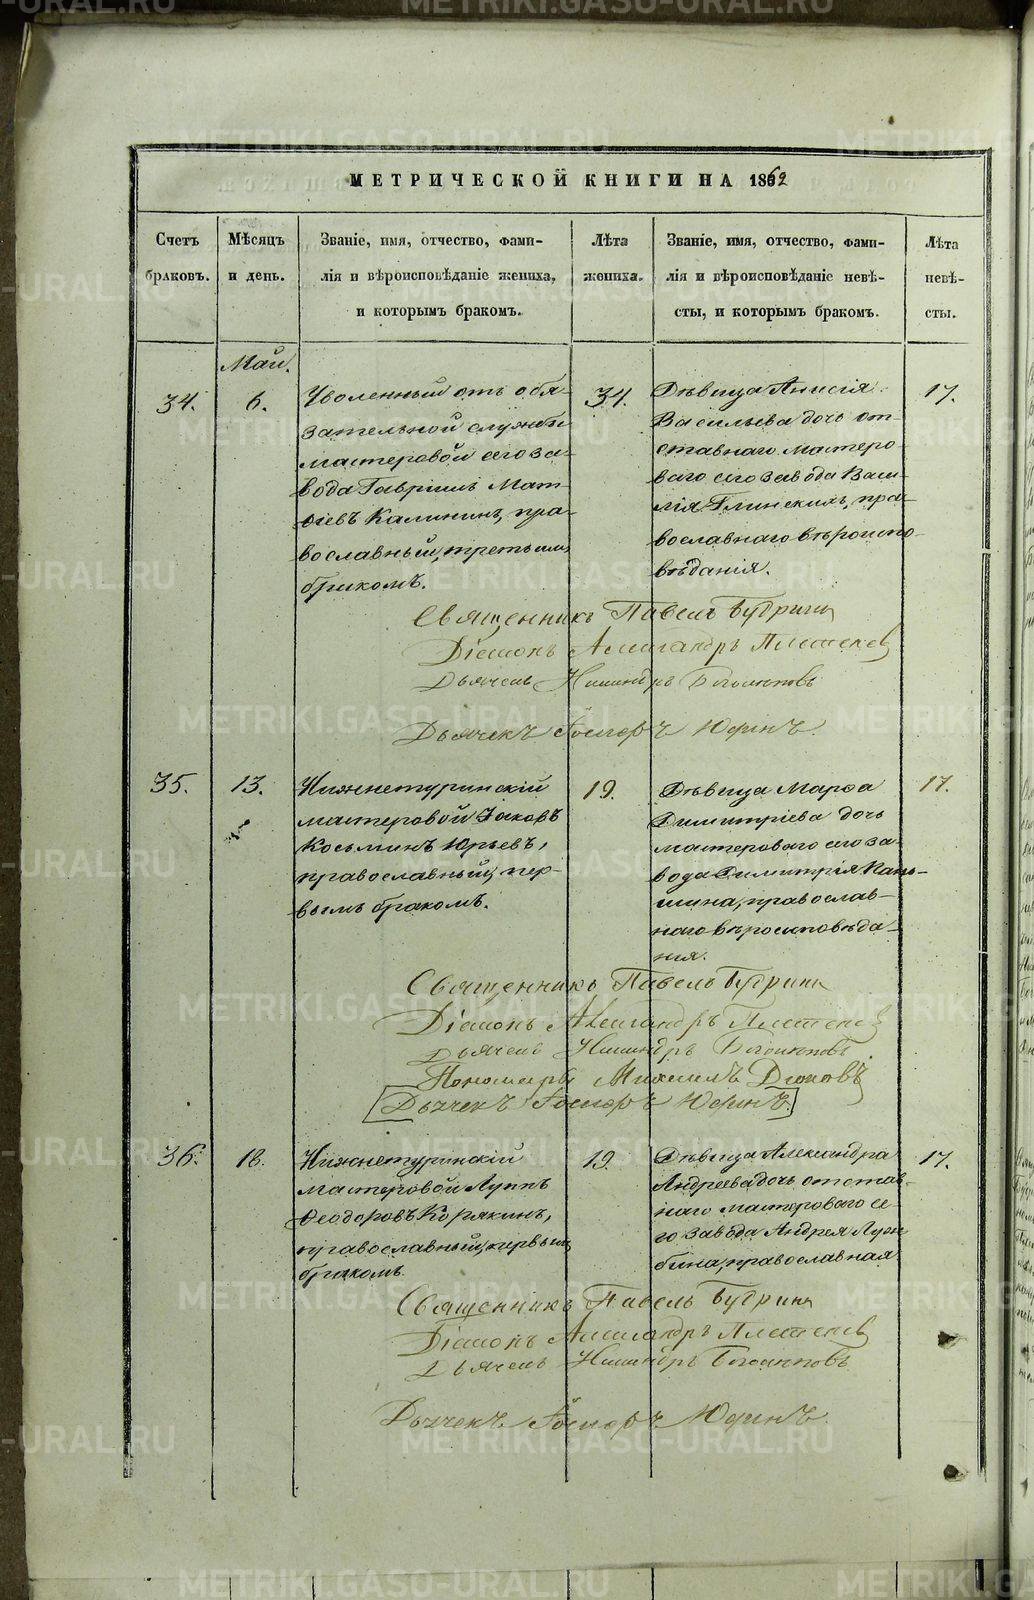 МЕТРИЧЕСКОЙ КНИГИ НА 1862
Счетъ
браковъ.
Мѣсяцъ
и день.
Званіе, имя, отчество, фами-
лія и вѣроисповѣданіе жениха,
и которымъ бракомъ.
Лѣта
жениха.
Званіе, имя, отчество, фами-
лія и вѣроисповѣданіе невѣ-
сты, и которымъ бракомъ.
Лѣта
невѣ-
сты.
Май.
34.
6.
Уволенный отъ обя-
зательной службы
мастеровой сего за-
вода Гавріилъ Мат-
ѳіевъ Калининъ, пра-
вославный, третьимъ
бракомъ.
34.
Дѣвица Анисія
Васильева дочь от-
ставнаго мастеро
ваго сего завода Васи-
лія Глинскихъ, пра-
вославнаго вѣроиспо-
вѣданія.
17.
Священникъ Павелъ Будринъ
Діаконъ Александръ Плетенев
Дьячекъ
Дьячекъ Юринъ.
35.
13.
Нижнетуринскій
мастеровой Іаковъ
Косьминъ Юрьевъ,
православный, пер-
вымъ бракомъ.
19.
Дѣвица Марѳа
Димитріева дочь
мастероваго сего за-
вода Димитрія Пань-
шина, православ-
наго вѣроисповѣда-
нія.
17.
Священникъ Павелъ Будринъ
Діаконъ Александръ Плетенев
Дьячекъ
Пономарь Михаилъ
Дьячекъ Юринъ.
36.
18.
Нижнетуринскій
мастеровой Луппъ
Ѳеодоровъ Корякинъ,
православный, первымъ
бракомъ.
19.
Дѣвица Александра
Андреева дочь отстав-
наго мастероваго се-
го завода Андрея
православная
17.
Священникъ Павелъ Будринъ
Діаконъ Александръ Плетенев
Дьячекъ
Дьячекъ Юринъ.
METRIKI.GASO-URAL.RU